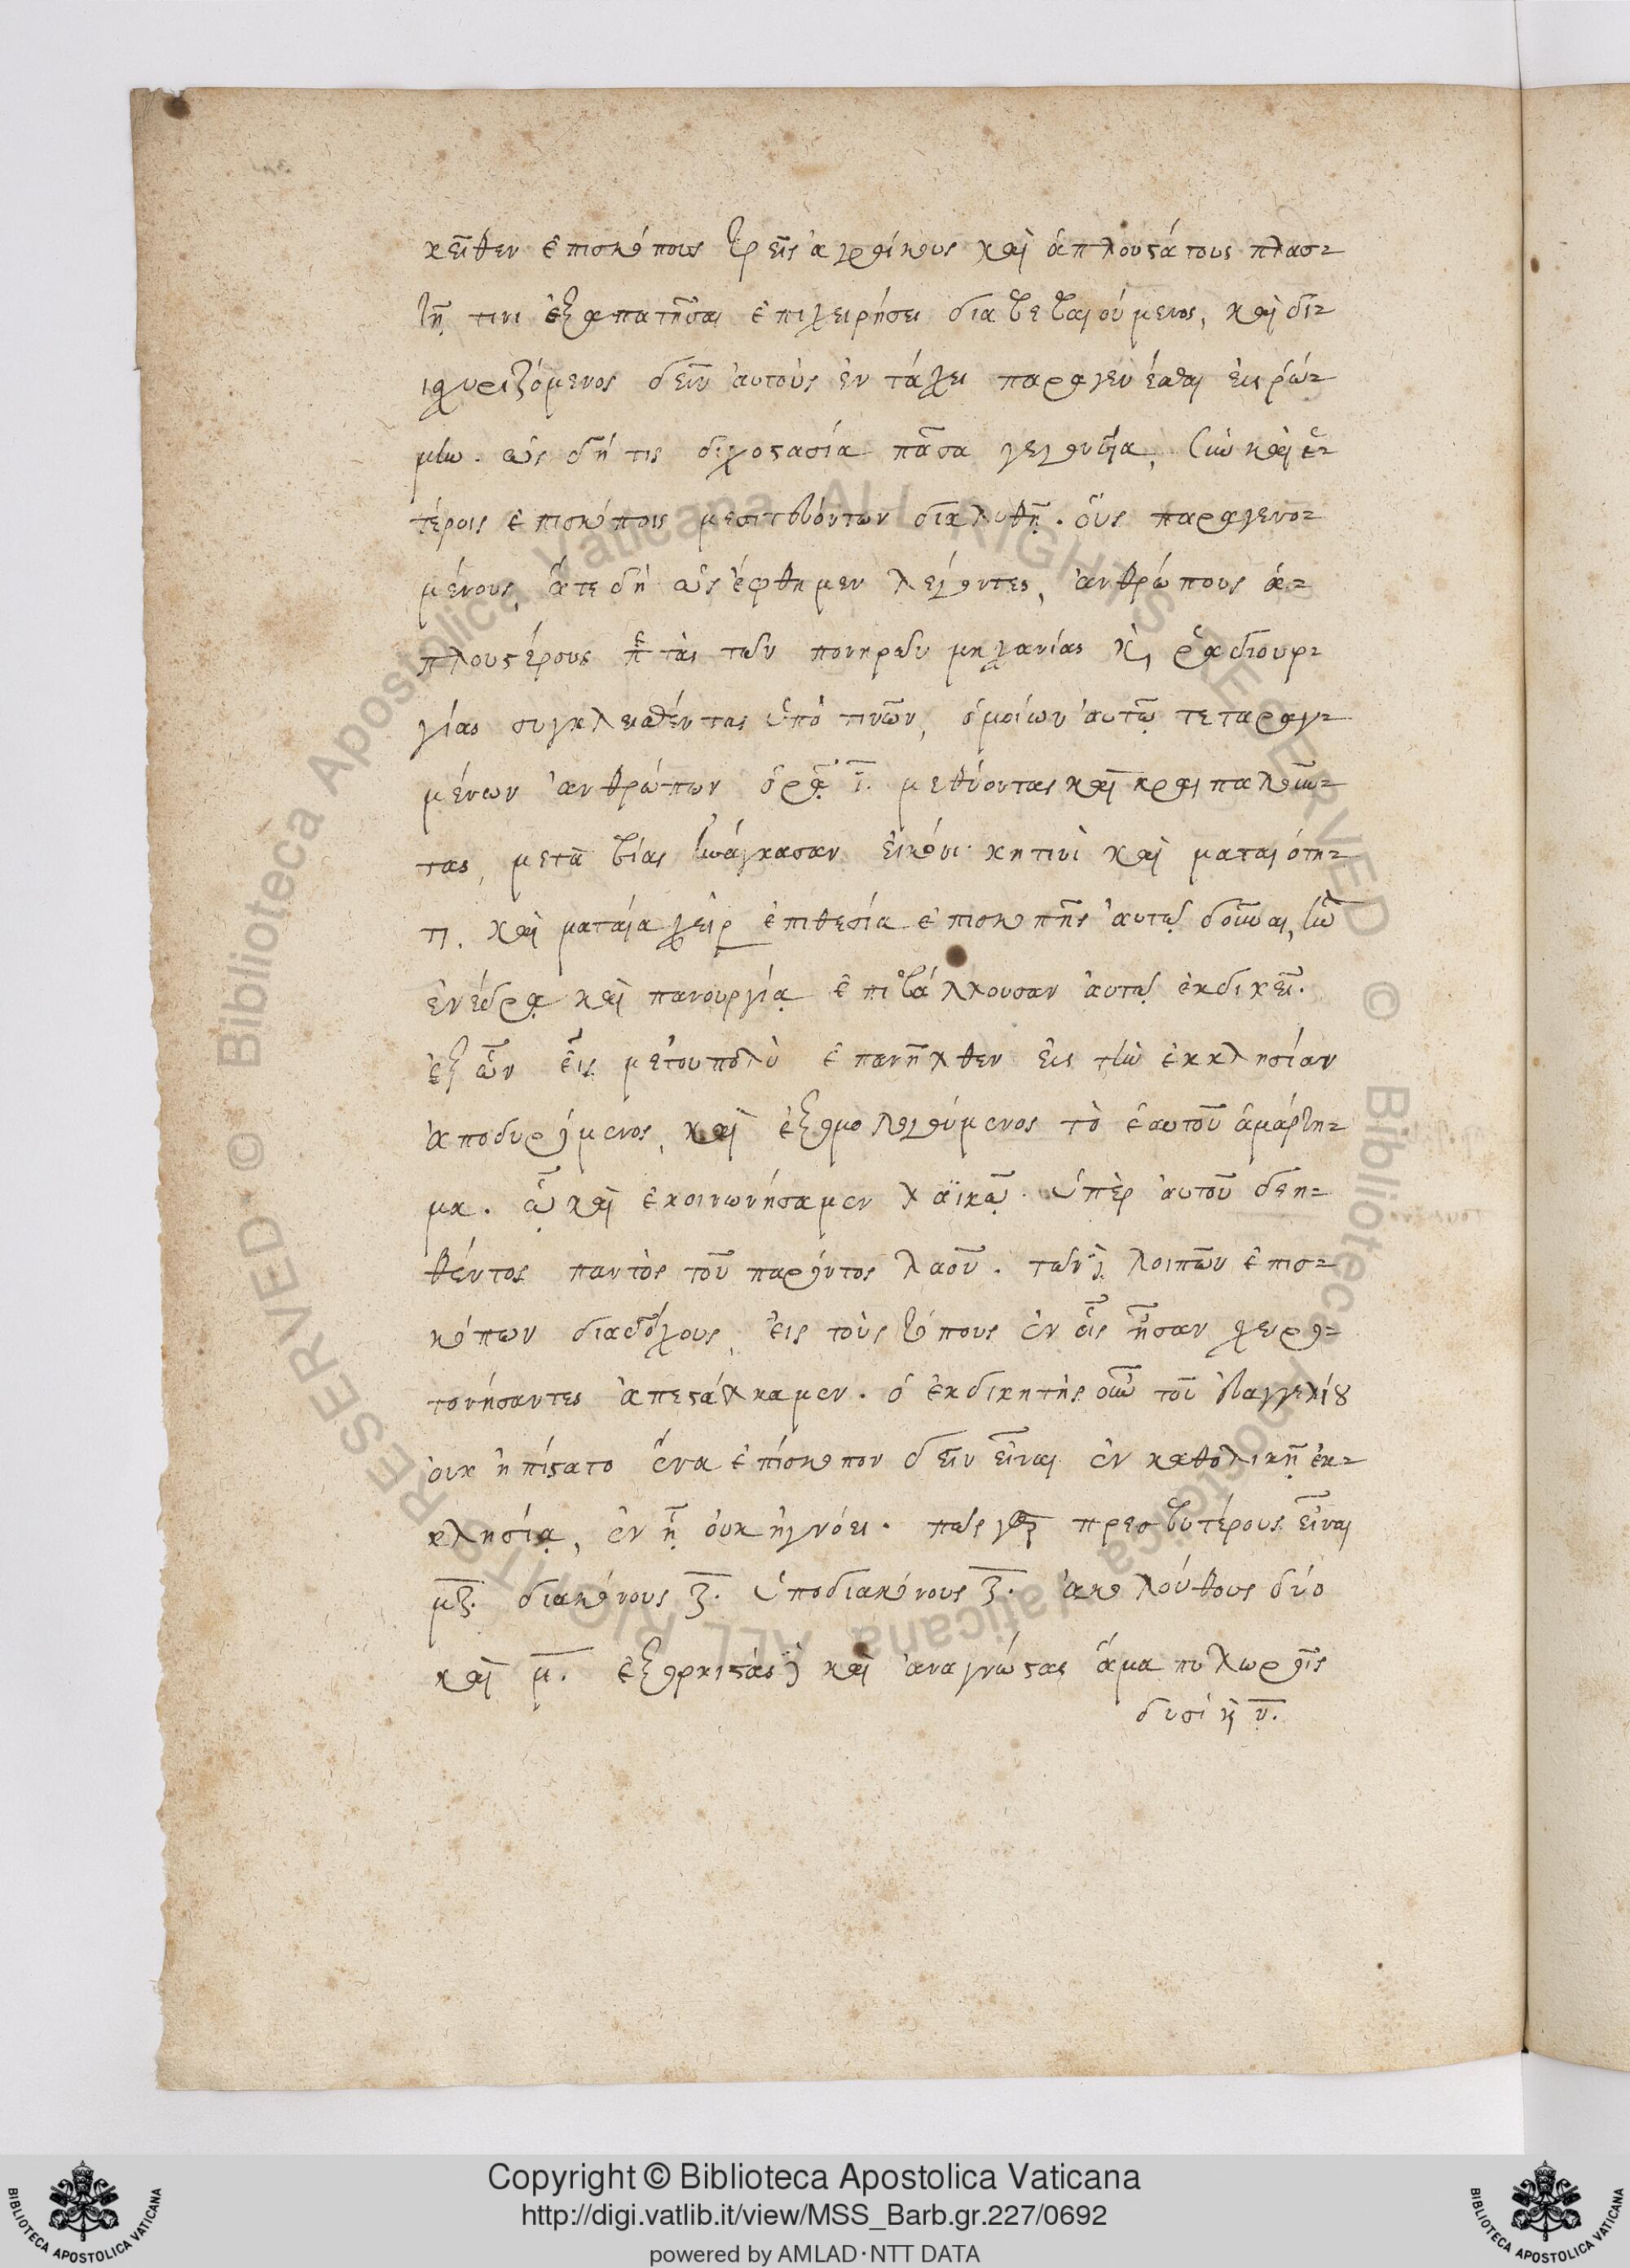 κεῖθεν ἐπισκόπους τρεῖς ἀγροίκους καὶ ἁπλουστάτους πλασ=
τῇ τινι ἐξαπατῆσαι ἐπιχειρήσει διαβεβαιούμενος, καὶ δι=
ισχυριζόμενος δεῖν αὐτοὺς ἐν τάχει παραγενέσθαι εἰς ῥώ=
μην. ὡς δή τις διχοστασία πᾶσα γεγονυῖα, σὺν καὶ ἑ=
τέροις ἐπισκόποις μεσιτευόντων διαλυθῇ. οὓς παραγενο=
μένους, ἅτε δὴ ὡς ἔφθημεν λέγοντες, ἀνθρώπους ἁ=
πλουστέρους πρὸς τὰς τῶν πονηρῶν μηχανίας καὶ ῥαδιουρ=
γίας συγκλεισθέντας ὑπό τινων, ὁμοίων αὐτῷ τεταραγ=
μένων ἀνθρώπων ὥρᾳ ῑ. μεθύοντας καὶ κραιπαλοῦν=
τας, μετὰ βίας ἠνάγκασαν εἰκονικῇ τινὶ καὶ ματαιότη=
τι. καὶ ματαία χειρεπιθεσία ἐπισκοπῆς αὐτῷ δοῦναι, ἣν
ἐνέδρᾳ καὶ πανουργίᾳ ἐπιβάλλουσαν αὐτῷ ἐκδικεῖ.
ἐξ ὧν εἷς μετ' οὐ πολὺ ἐπανῆλθεν εἰς τὴν ἐκκλησίαν
ἀποδυρόμενος, καὶ ἐξομολογούμενος τὸ ἑαυτοῦ ἁμάρτη=
μα. ᾧ καὶ ἐκοινωνήσαμεν λαϊκῷ. ὑπὲρ αὐτοῦ δεη=
θέντος παντὸς τοῦ παρόντος λαοῦ. τῶν δὲ λοιπῶν ἐπισ=
κόπων διαδόχους, εἰς τοὺς τόπους ἐν οἷς ἦσαν χειρο=
τονήσαντες ἀπεστάλκαμεν. ὁ ἐκδικητὴς οὖν τοῦ εὐαγγελίου
οὐκ ἠπίστατο ἕνα ἐπίσκοπον δεῖν εἶναι ἐν καθολικῇ ἐκ=
κλησίᾳ, ἐν ᾗ οὐκ ἠγνόει. πῶς γὰρ πρεσβυτέρους εἶναι
μ̅ϛ̅. διακόνους ζ̅. ὑποδιακόνους ζ̅. ἀκολούθους δύο
καὶ μ̅. ἐξορκιστὰς δὲ καὶ ἀναγνώστας ἅμα πυλωροῖς
δυσὶ καὶ ν̅.
Copyright © Biblioteca Apostolica Vaticana
http://digi.vatlib.it/view/MSS_Barb.gr.227/0692
powered by AMLAD·NTT DATA